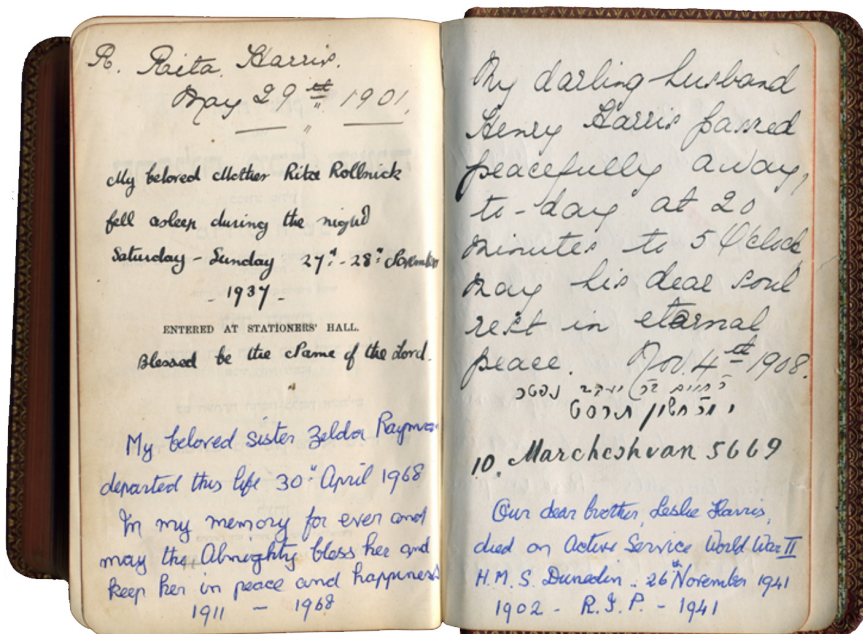 R. Rita Harris.
May 29th 1901.
My beloved Mother Rita Rollnick
fell asleep during the night
Saturday - Sunday 27th - 28th November
- 1937 -
ENTERED AT STATIONERS' HALL.
Blessed be the Name of the Lord.
My beloved sister Zelda
departed this life 30th April 1968
In my memory for ever and
may the Almighty bless her and
keep her in peace and happiness
1911 - 1968
My darling husband
Henry Harris passed
peacefully away,
to-day at 20
minutes to 5 O'clock
may his dear soul
rest in eternal
peace. Nov. 4th 1908.
חיים יעקב נפטר
י חשון תרסט
10. Marcheshvan 5669
Our dear brother, Leslie Harris,
died on Active Service World War II
H.M.S. Dunedin - 26th November 1941
1902 - R.I.P. - 1941